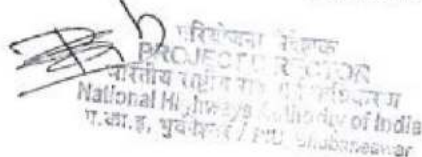 परियोजना निदेशक
PROJECT DIRECTOR
भारतीय राष्ट्रीय
National Highways Authority of India
प.का.इ, भुवनेश्वर / PIU Bhubaneswar